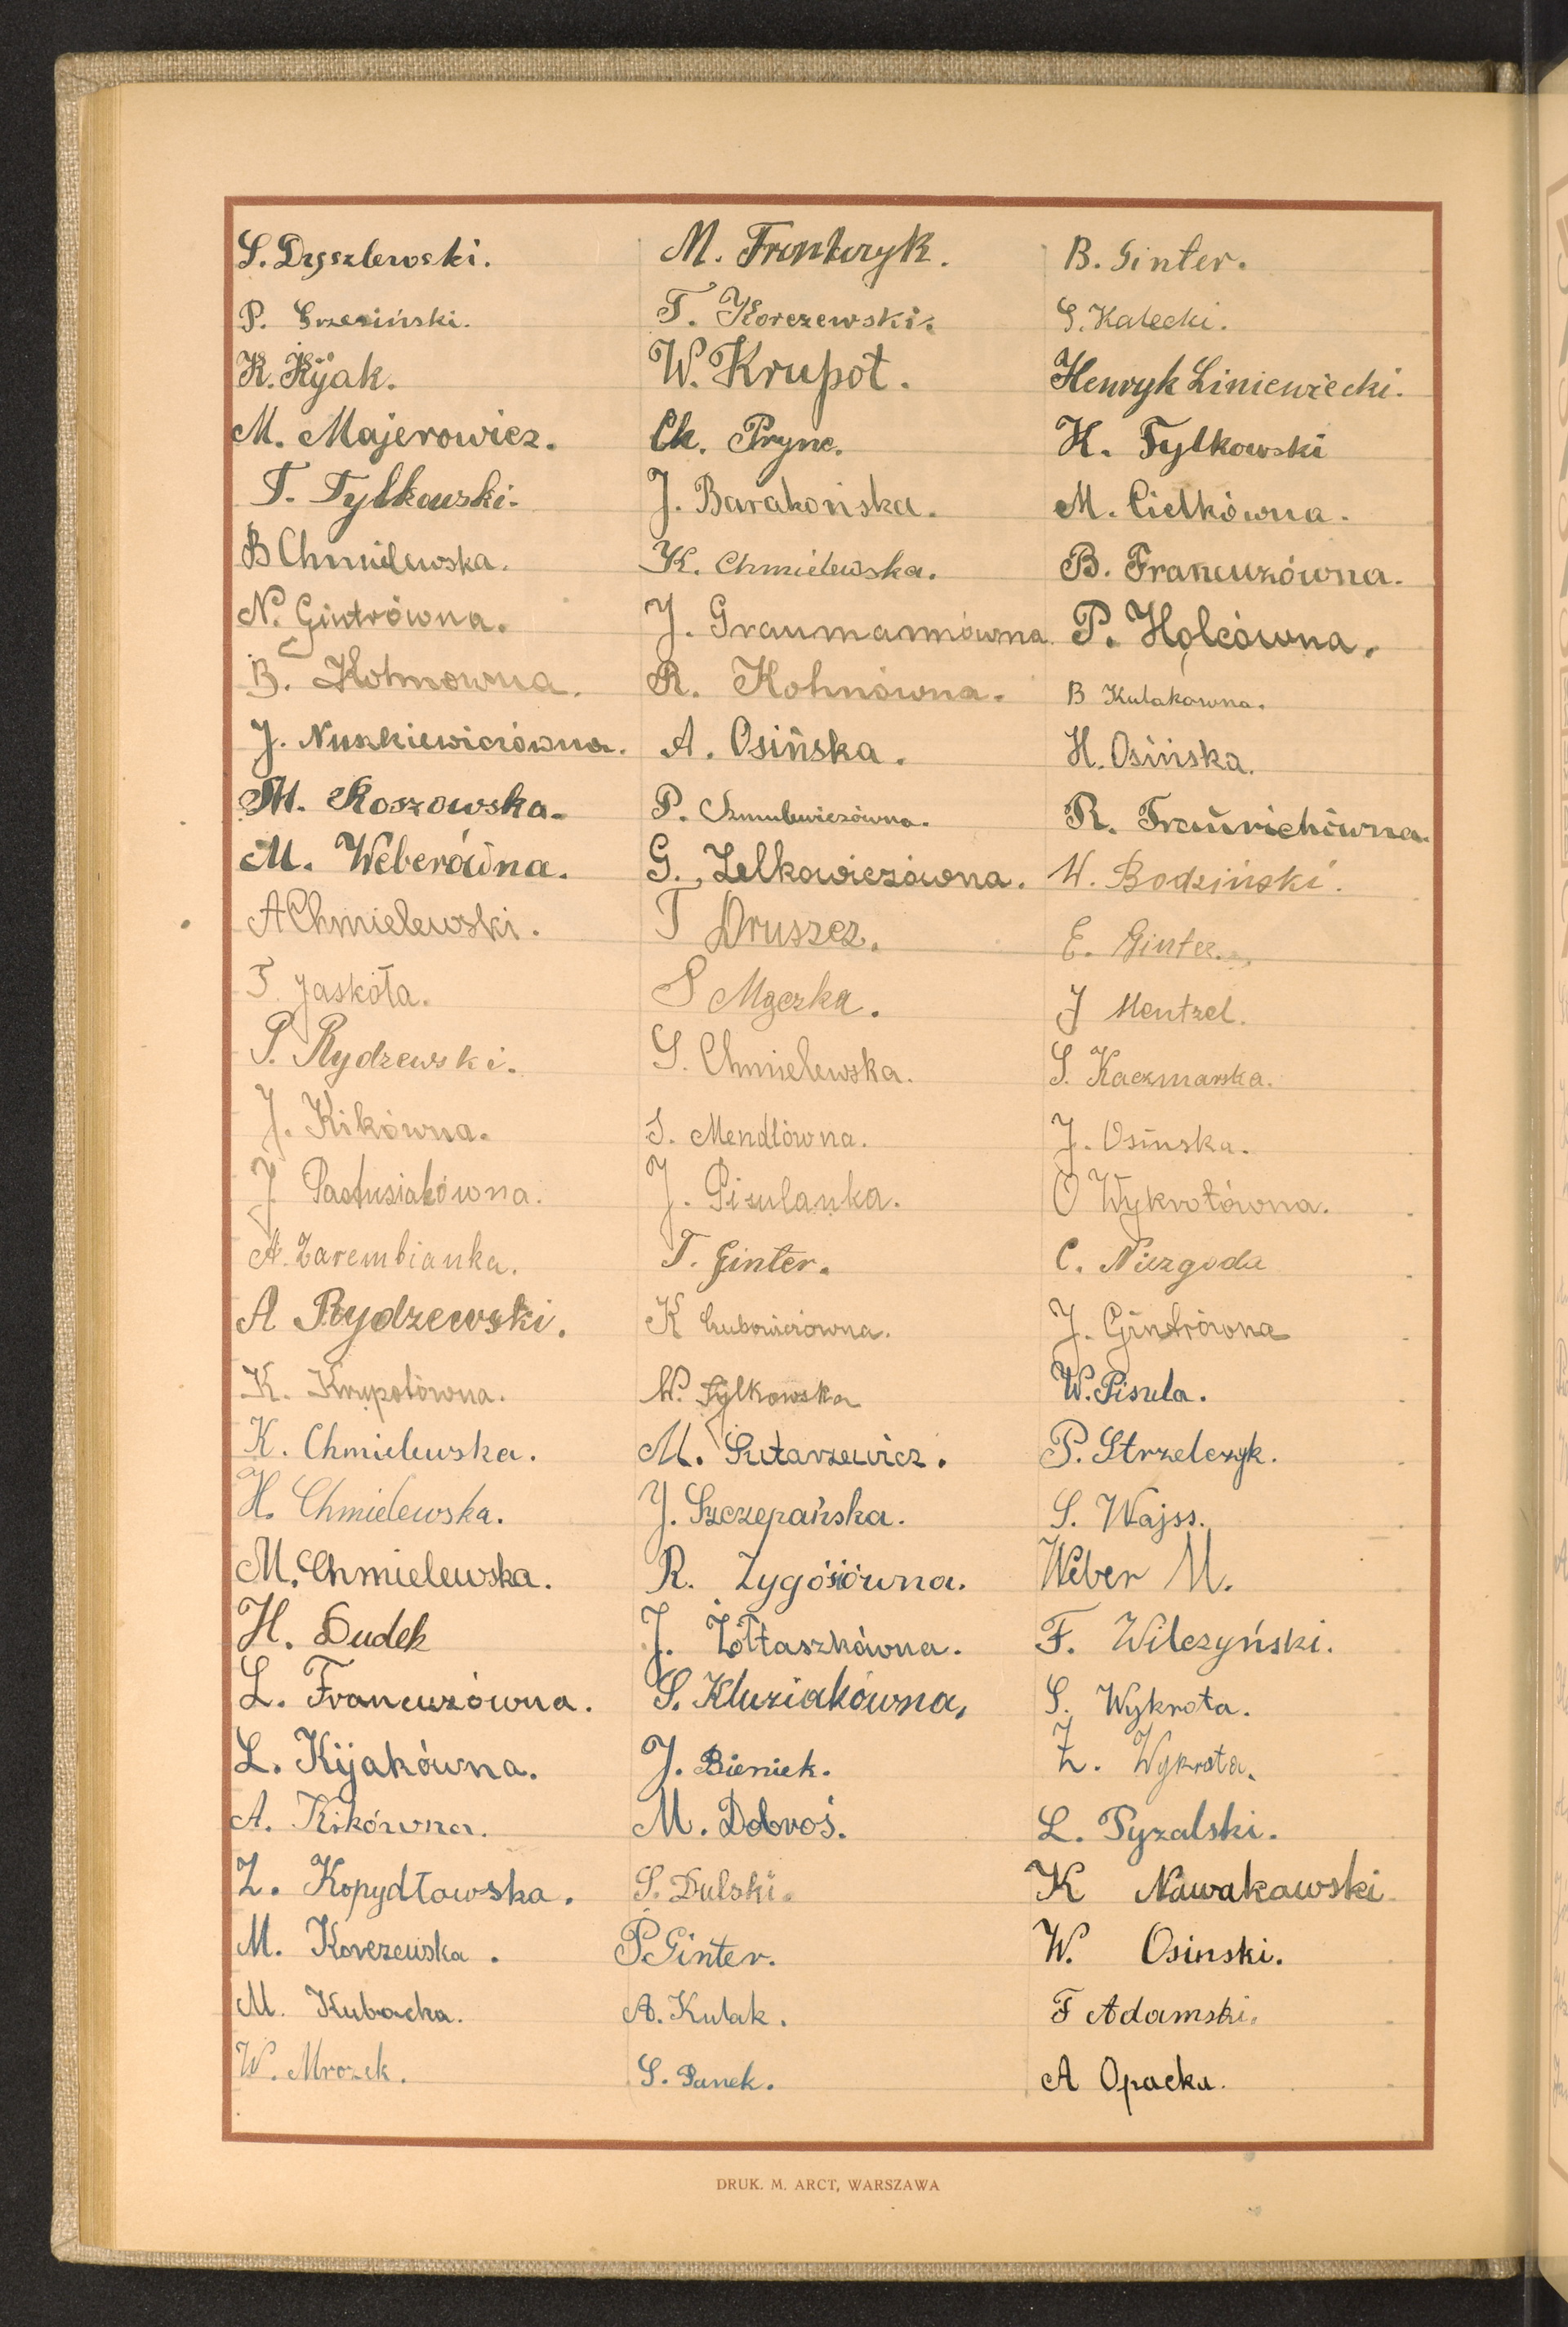 S. Dyszlewski. M. Frontczyk. B. Ginter.
P. Grzesiński. T. Korczewski. S. Kalecki.
K. Kijak. W. Krupot. Henryk Liniewiecki.
M. Majerowicz. Ch. Prync. K. Tylkowski
T. Tylkowski. J. Barakońska. M. Cielkówna.
B Chmielewska. K. Chmielewska. B. Francuzówna.
N. Gintrówna. J. Graumanówna. P. Holcówna.
B. Kohnowna. R. Kohnówna. B Kulakowna.
J. Nuszkiewiczówna. A. Osińska. H. Osińska.
M. Roszowska. P. Szmulewiczówna. R.
M. Weberówna. G. Zelkowiczówna. W. Bodziński.
A Chmielewski. T Druszcz. E. Ginter.
T. Jaskóła. S Mączka. J Mentzel.
P. Rydzewski. S. Chmielewska. S. Kaczmarska.
J. Kikówna. S. Mendlówna. J. Osinska.
J Pastusiakówna. J. Pisulanka. O Wykrotówna.
A. Zarembianka. T. Ginter. C. Niezgoda
A Rydzewski. K J. Gintrówna
K. Krupotówna. W. Tylkowska W. Pisula.
K. Chmielewska. M. P. Strzelczyk.
H. Chmielewska. J. Szczepańska. S. Wajss.
M. Chmielewska. R. Zygósiówna. Weber M.
H. Dudek J. Żółtaszkówna. F. Wilczyński.
L. Francuzówna. S. Kluziakówna. S. Wykrota.
L. Kijakówna. J. Bieniek. Z. Wykrota.
A. Kikówna. M. Dobroś. L. Pyzalski.
Z. Kopydłowska. S. Dulski. K Nawakawski
M. Korczewska. P. Ginter. W. Osinski.
M. Kubacka. A. Kulak. F Adamski.
W. Mrozek. S. Panek. A Opacka.
DRUK. M. ARCT, WARSZAWA